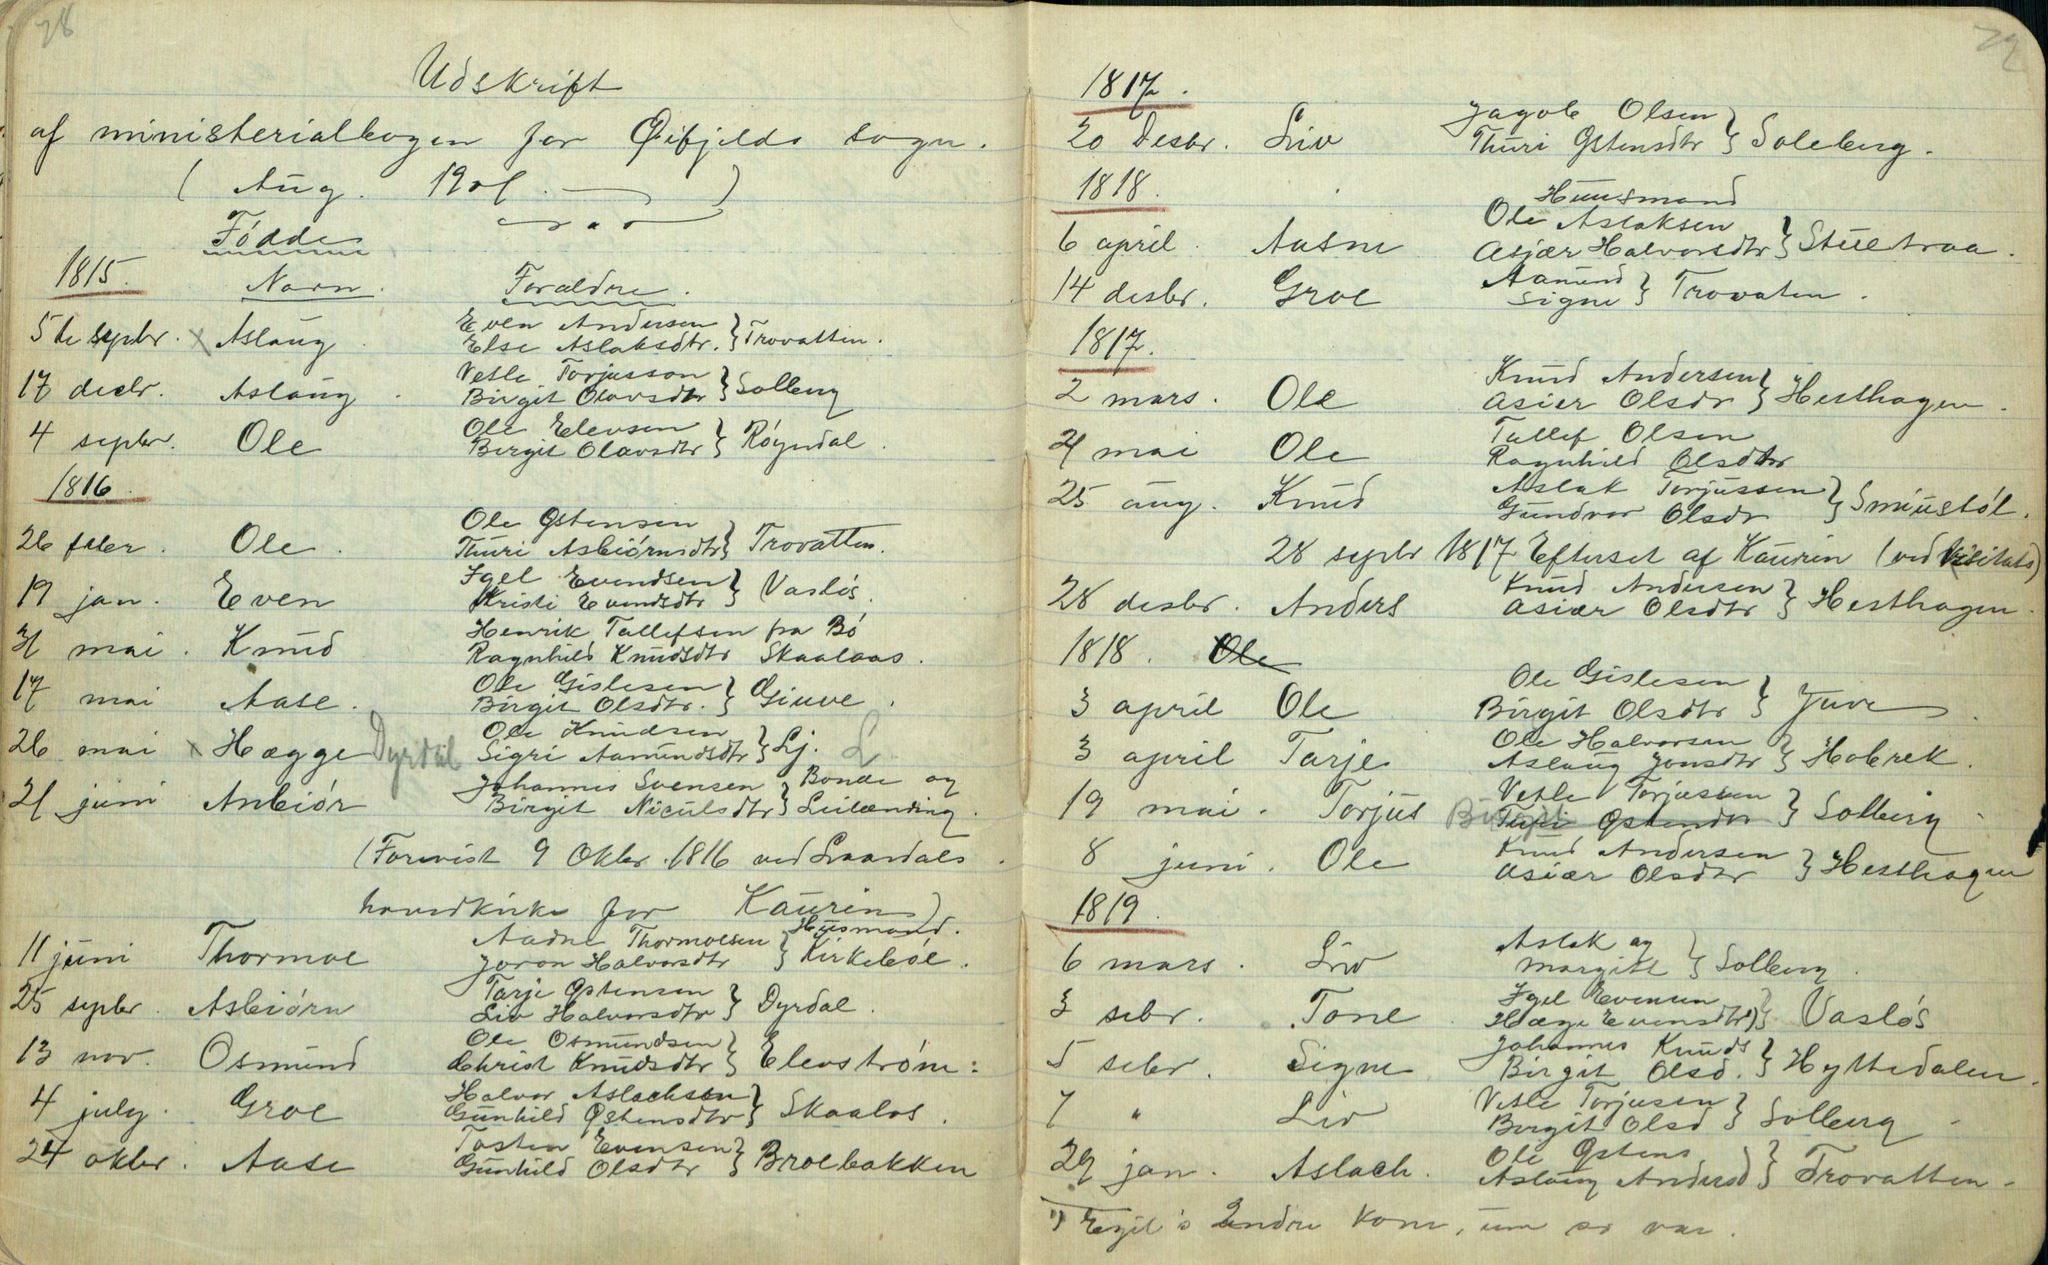 78
Udskrift
af ministerialbogen for Øifjelds sogn.
( Aug. )
Födde
1815.
Navn. Forældre.
5te sepbr. x Aslaug Even Andersen } Trovatten.
Else Aslaksdtr.
17 decbr. Aslaug. Vetle Torjusson } Solberg
Birgit Olavsdtr
4 sepbr. Ole Ole Elevsen } Röyndal.
Birgit Olavsdtr
1816.
26 feber. Ole. Ole Østensen } Trovatten.
Thuri Asbiörnsdtr
19 jan. Even Igel Evendsen } Vaslös.
Kristi Evendsdtr
31 mai. Knud Henrik Tallefsen fra Bö
Ragnhild Knudsdtr Skaalaas.
17 mai Aase. Ole Gislesen } Giuve.
Birgit Olsdtr.
26 mai x Hægge Dyrdal Ole Knudsen } Lj. L
Sigri Aamundsdtr
21 juni Anbiör Johannes Svensen } Bonde og
Birgit Niculsdtr Leilænding.
(Forevist 9 Okbr. 1816 ved Laardals
hovedkirke for Kaurin).
11 juni Thormoe Aadne Thormoesen } Husmand.
Joron Halvorsdtr Kirkeböl.
25 sepbr. Asbiörn Tarje Østensen } Dyrdal.
Liv Halvorsdtr
13 nov. Osmund Ole Osmundsen } Elevström:
Christ Knudsdtr
4 july. Groe Halvor Aslachsen } Skaalos.
Gunhild Østensdtr
24 okbr. Aase Tosten Evensen } Broebakken
Gunhild Olsdtr
79
1817.
20 Desbr. Liv Jagob Olsen } Soleberg.
Thuri Østensdtr
1818.
Huusmand
6 april. Aasne Ole Aslaksen } Stuetraa.
Asjær Halvorsdtr
14 desbr. Groe Aamund } Trovaten.
Signe
1817.
2 mars. Ole Knud Andersen } Hesthagen.
Asier Olsdr
21 mai Ole Tallef Olsen
Ragnhild Olsdtr
25 aug. Knud Aslak Torjussen } Smiustöl.
Gundvor Olsdr
28 sepbr 1817 Efterset af Kaurin (ved Visitats)
28 desbr. Anders Knud Andersen } Hesthagen.
Asiær Olsdtr
1818. Ole
3 april Ole Ole Gislesen } Juve.
Birgit Olsdtr
3 april Tarje Ole Halvorsen } Hobrek.
Aslaug Jonsdtr
19 mai. Torjus Vetle Torjussen } Solberg
Birgit Turi Østensdtr
8 juni. Ole Knud Andersen } Hesthagen
Asiær Olsdtr
1819.
6 mars. Liv Aslak og } Solberg.
Margitt
3 sebr. Tone Igel Evensen } Vaslös
Hæge Evensdtr¹)
5 sebr. Signe Johannes Knuds } Hyttedalen.
Birgit Olsd.
7 " Liv Vetle Torjusen } Solberg
Birgit Olsd
29 jan. Aslach. Ole Østens } Trovatten.
Aslaug Andersd
¹) Egil's andre kone, um so var.